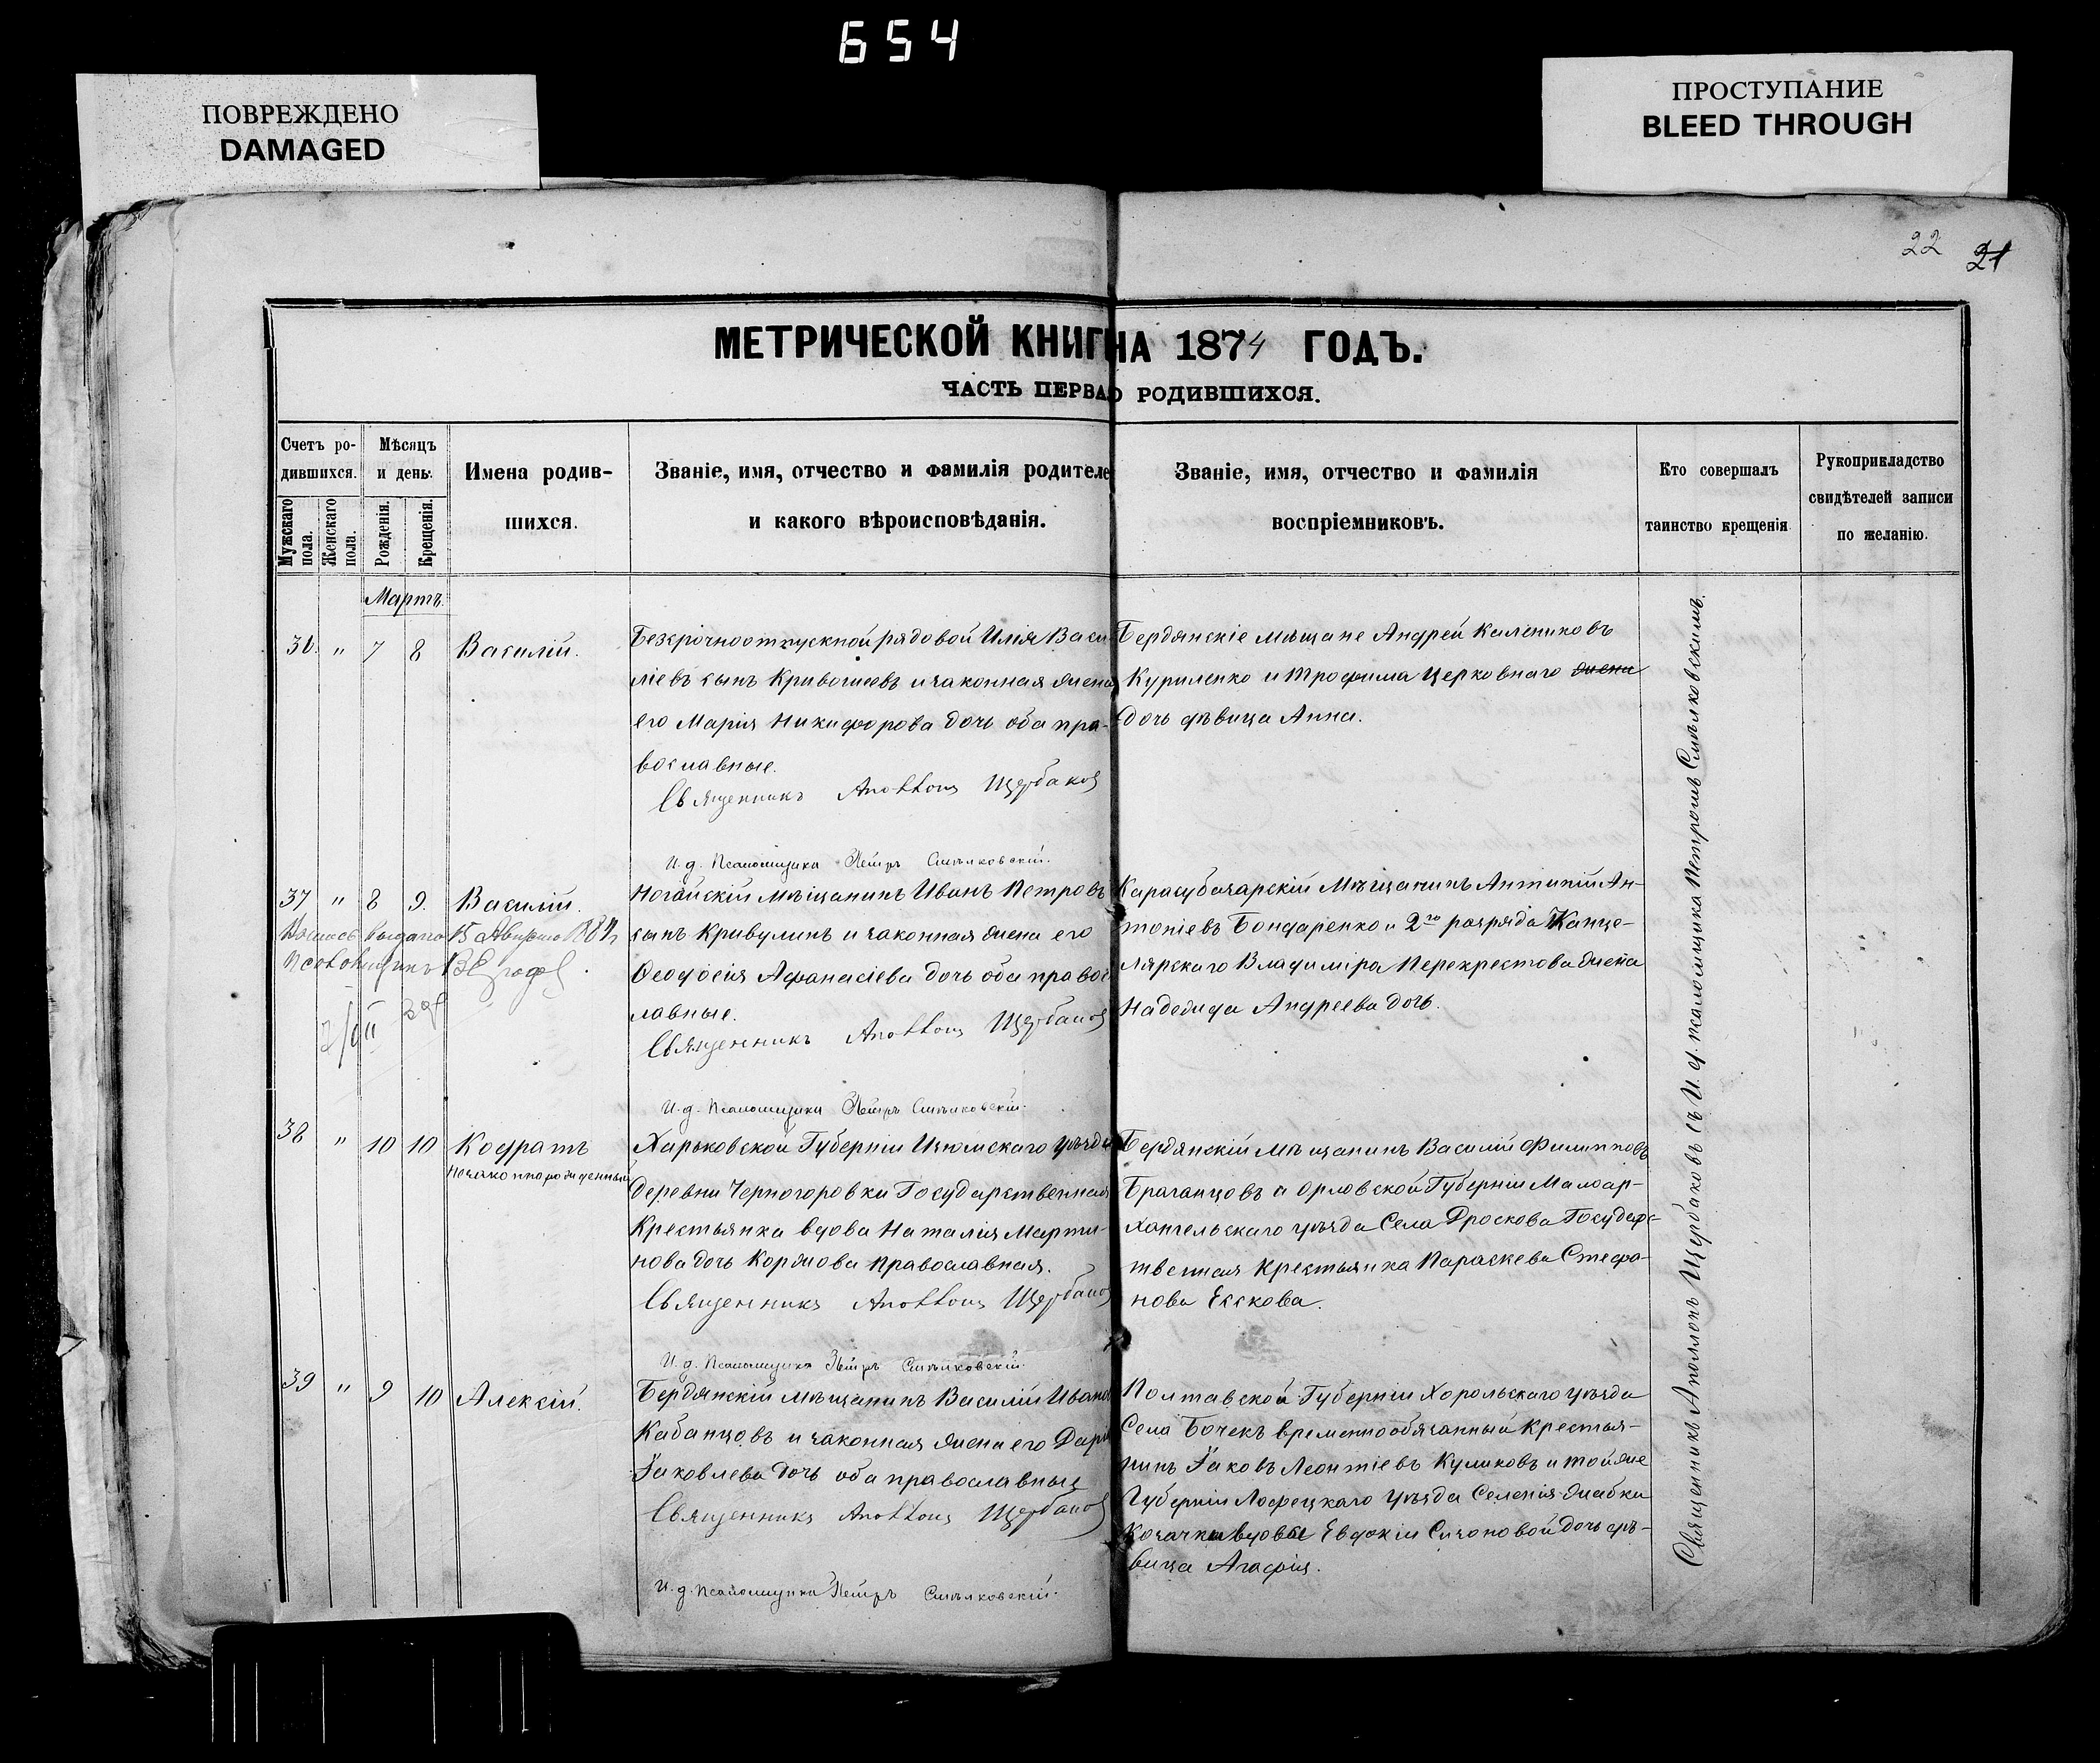 654
ПОВРЕЖДЕНО
DAMAGED
ПРОСТУПАНИЕ
BLEED THROUGH
22 21
МЕТРИЧЕСКОЙ КНИГ НА 1874 ГОДЪ.
ЧАСТЬ ПЕРВА О РОДИВШИХСЯ.
Счетъ ро-
дившихся.
Мужскаго пола.
Женскаго пола.
Мѣсяцъ
и день.
Рожденія.
Крещенія.
Имена родив-
шихся.
Званіе, имя, отчество и фамилія родителе
и какого вѣроисповѣданія.
Званіе, имя, отчество и фамилія
воспріемниковъ.
Кто совершалъ
таинство крещенія
Рукоприкладство
свидѣтелей записи
по желанію.
Мартъ.
36. " 7 8 Василій.
Безсрочноотпускной рядовой Илія Васи-
ліевъ сынъ Кривошеевъ и законная жена
его Марія Никифорова дочь оба пра-
вославные.
Священникъ Аполлонъ Щербаковъ
И. д. Псаломщика Петръ Смѣлковскій.
Бердянскіе мѣщане Андрей Калениковъ
Куриленко и Трофима Церковнаго жена
дочь дѣвица Анна.
37 " 8 9. Василій.
выдана 15 1884
2/VII
Ногайскій мѣщанинъ Иванъ Петровъ
сынъ Кривулинъ и законная жена его
Ѳеодосія Афанасіева дочь оба правос
лавные.
Священникъ Аполлонъ Щербаковъ
И. д. Псаломщика Петръ Смѣлковскій.
Карасубазарскій Мѣщанинъ Антипій Ан-
тоніевъ Бондаренко и 2го разряда Канце-
лярскаго Владиміра Перекрестова жена
Надежда Андреева дочь.
38 " 10 10 Кодратъ
Незаконнорожденный
Харьковской Губерніи Изюмскаго уѣзда
деревни Черногоровки Государственная
Крестьянка вдова Наталія Марти-
нова дочь Коржова Православная.
Священникъ Аполлонъ Щербаковъ
И. д. Псаломщика Петръ Смѣлковскій.
Бердянскій мѣщанинъ Василій Филипповъ
Браганцовъ и Орловской Губерніи Малоар-
хангельскаго уѣзда Села Дроскова Государс-
твенная Крестьянка Параскева Стефа-
нова Ескова.
39 " 9 10 Алексій.
Бердянскій мѣщанинъ Василій Иванов
Кабанцовъ и законная жена его Дарія
Іаковлева дочь оба православные
Священникъ Аполлонъ Щербаковъ
И. д. Псаломщика Петръ Смѣлковскій.
Полтавской Губерніи Хорольскаго уѣзда
Села Бочекъ временнообязанный Крестья-
нинъ Іаковъ Леонтіевъ Куликовъ и той же
Губерніи уѣзда Селенія Жабки
Козачки вдовы Евдокіи Сизоновой дочь дѣ-
вица Агафія.
Священникъ Аполлонъ Щербаковъ съ И. д. псаломщика Петромъ Смѣлковскимъ.